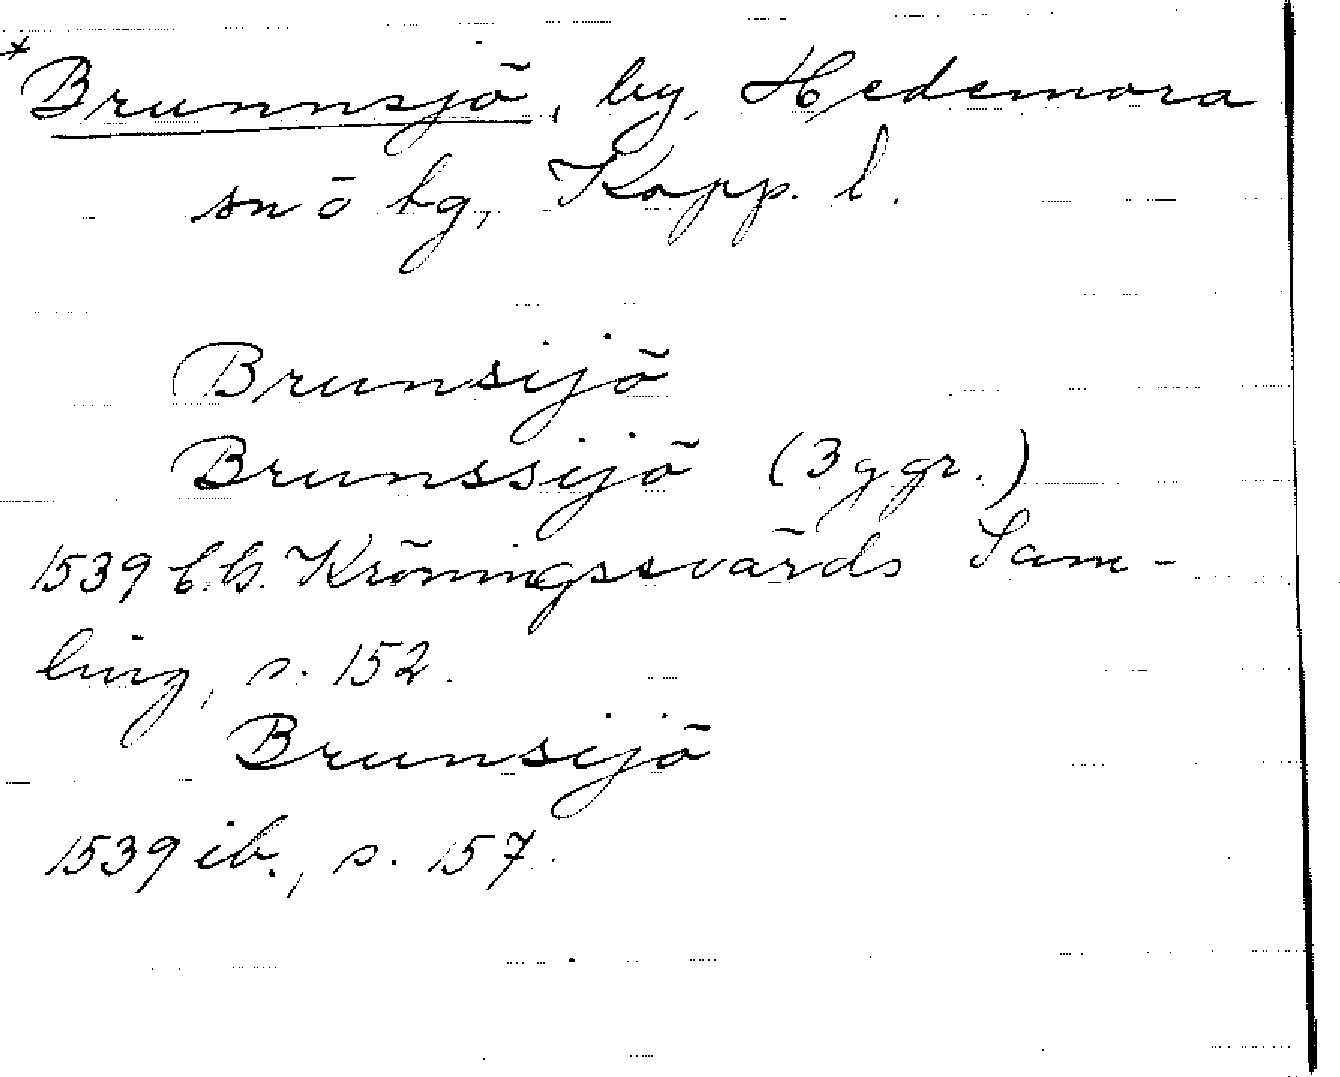 *Brunnsjö, by, Hedemora
sn ö tg, Kopp. l.
Brunsijö
Brunssijö (3 ggr.)
1539 Kröningssvärds Sam-
ling, s. 152.
Brunsijö
1539 ib., s. 157.